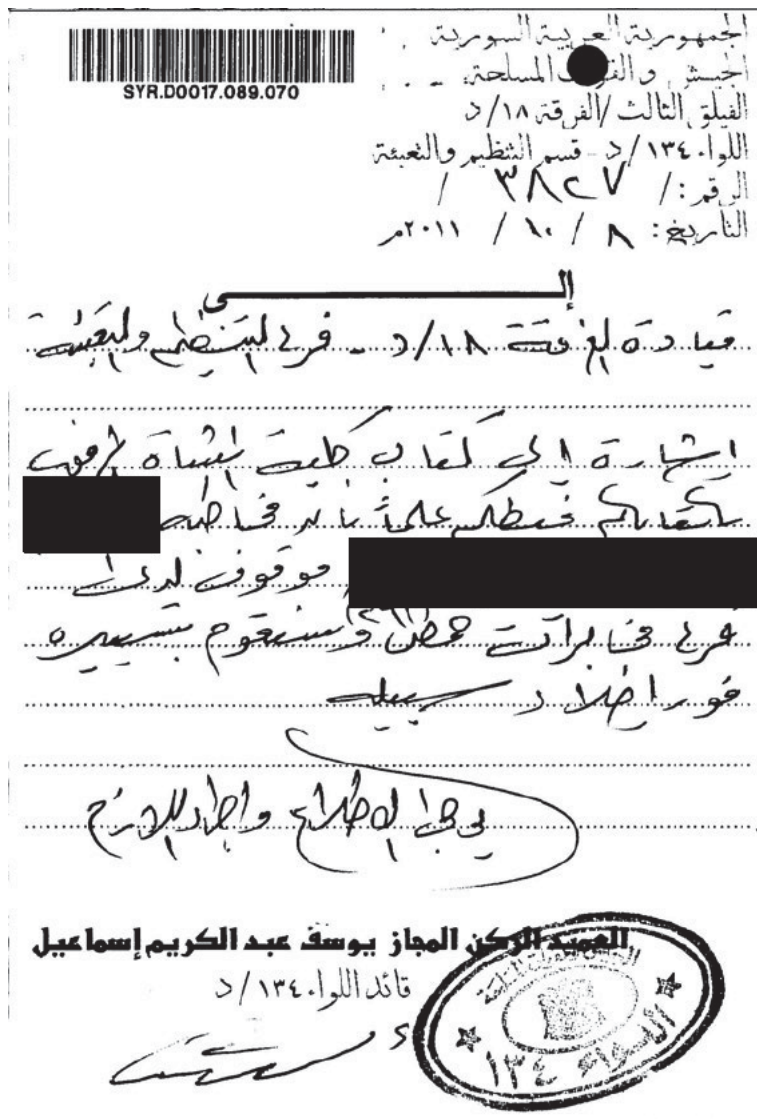 SYR.D0017.089.070
الجمهورية العربية السورية
الجيش و المسلحة
الفيلق الثالث/الفرقة ١٨/د
اللواء ١٣٤/د - قسم التنظيم والتعبئة
الرقم: / ٣٨٢٧ /
التاريخ: ٨ / ١٠ / ٢٠١١م
إلــى
قيادة الفرقة ١٨/د - فرع التنظيم والتعبئة
اشارة إلى كتاب كلية المشاة المرفق
بكتابكم نحيطكم علماً بأنه
موقوف لدى
فرع مخابرات حمص وسنقوم بتسييره
فور اخلاء سبيله
يرجى الاطلاع واجراء اللازم
العميد الركن المجاز يوسف عبد الكريم إسماعيل
قائد اللواء ١٣٤/د
اللواء ١٣٤